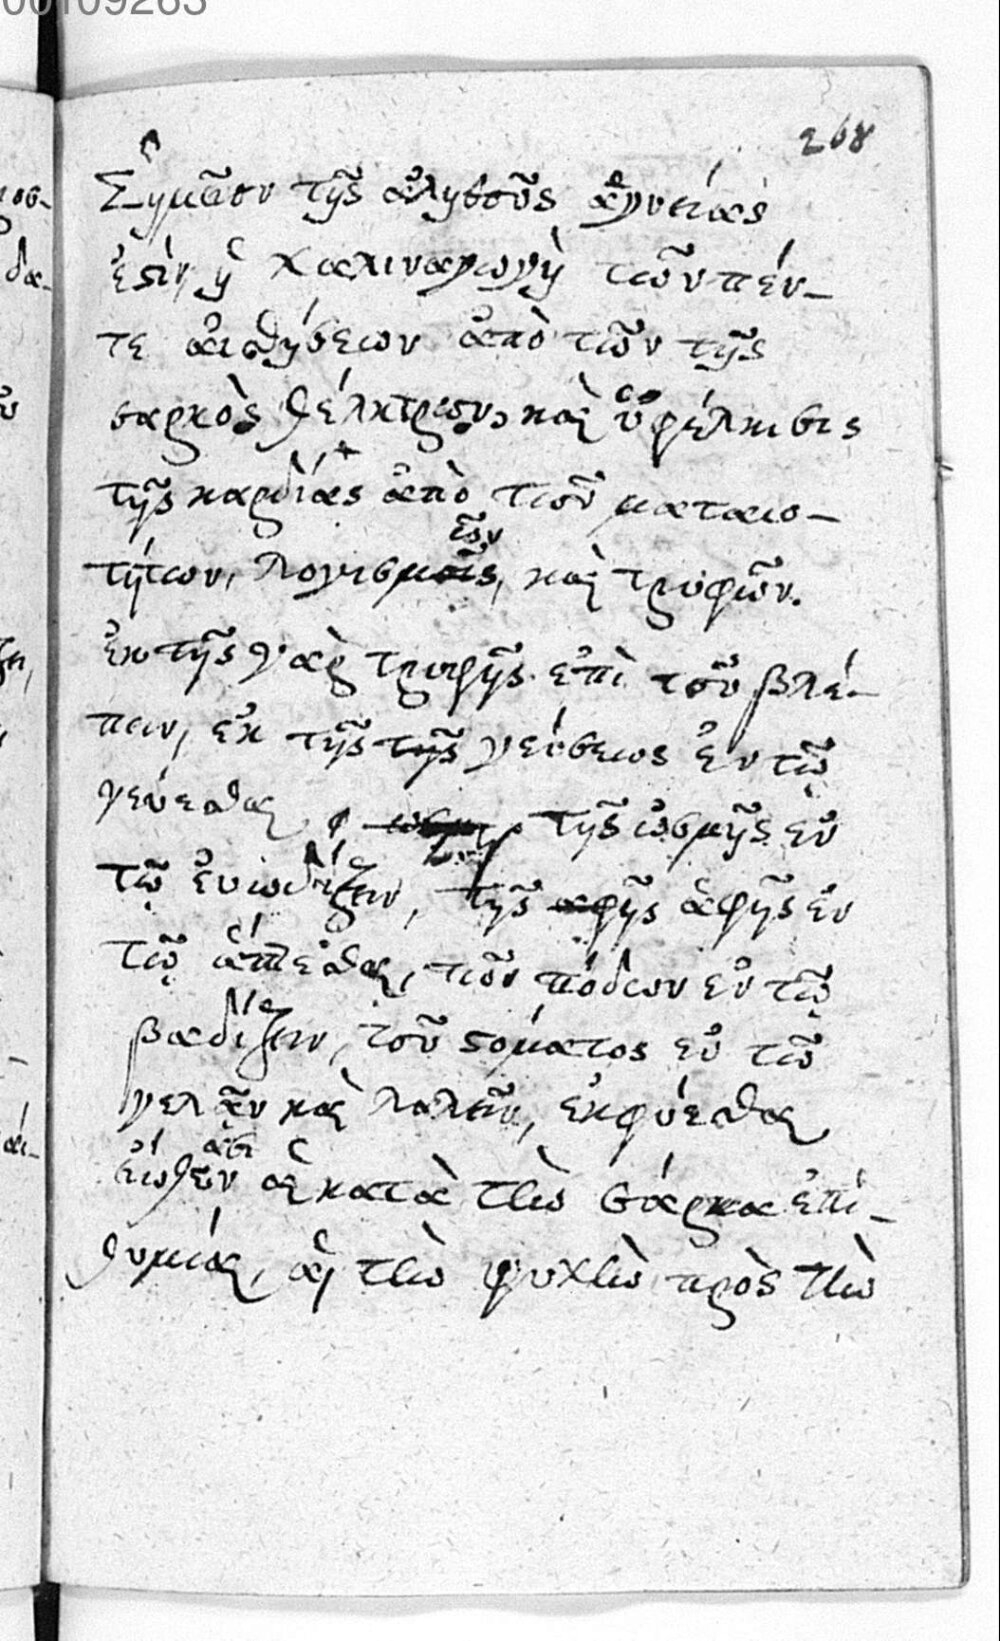 00109263
268
Σημεῖον τῆς ἀληθοῦς ἁγνείας
ἐστὶν ἡ χαλιναγωγὴ τῶν πέν-
τε αἰσθήσεων ἀπὸ τῶν τῆς
σαρκὸς θέλκτρων, καὶ ἡ ὑφέλκισις
τῆς καρδίας ἀπὸ τῶν ματαιο-
τήτων, λογισμῶν, καὶ τρυφῶν.
ἐκ τῆς γὰρ τρυφῆς ἐπὶ τοῦ βλέ-
πειν, ἐκ τῆς τῆς γεύσεως ἐν τῷ
γεύεσθαι, τῆς ὠσμῆς ἐν
τῷ ἐνωδίζειν, τῆς ἀφῆς ἁφῆς ἐν
τῷ ἅπτεσθαι, τῶν πόδων ἐν τῷ
βαδίζειν, τοῦ στόματος ἐν τῷ
γελᾶν καὶ λαλεῖν, ἐκφύεσθαι
εἰώθασι αἱ κατὰ τὴν σάρκα ἐπι-
θυμίαι, αἳ τὴν ψυχὴν πρὸς τὴν